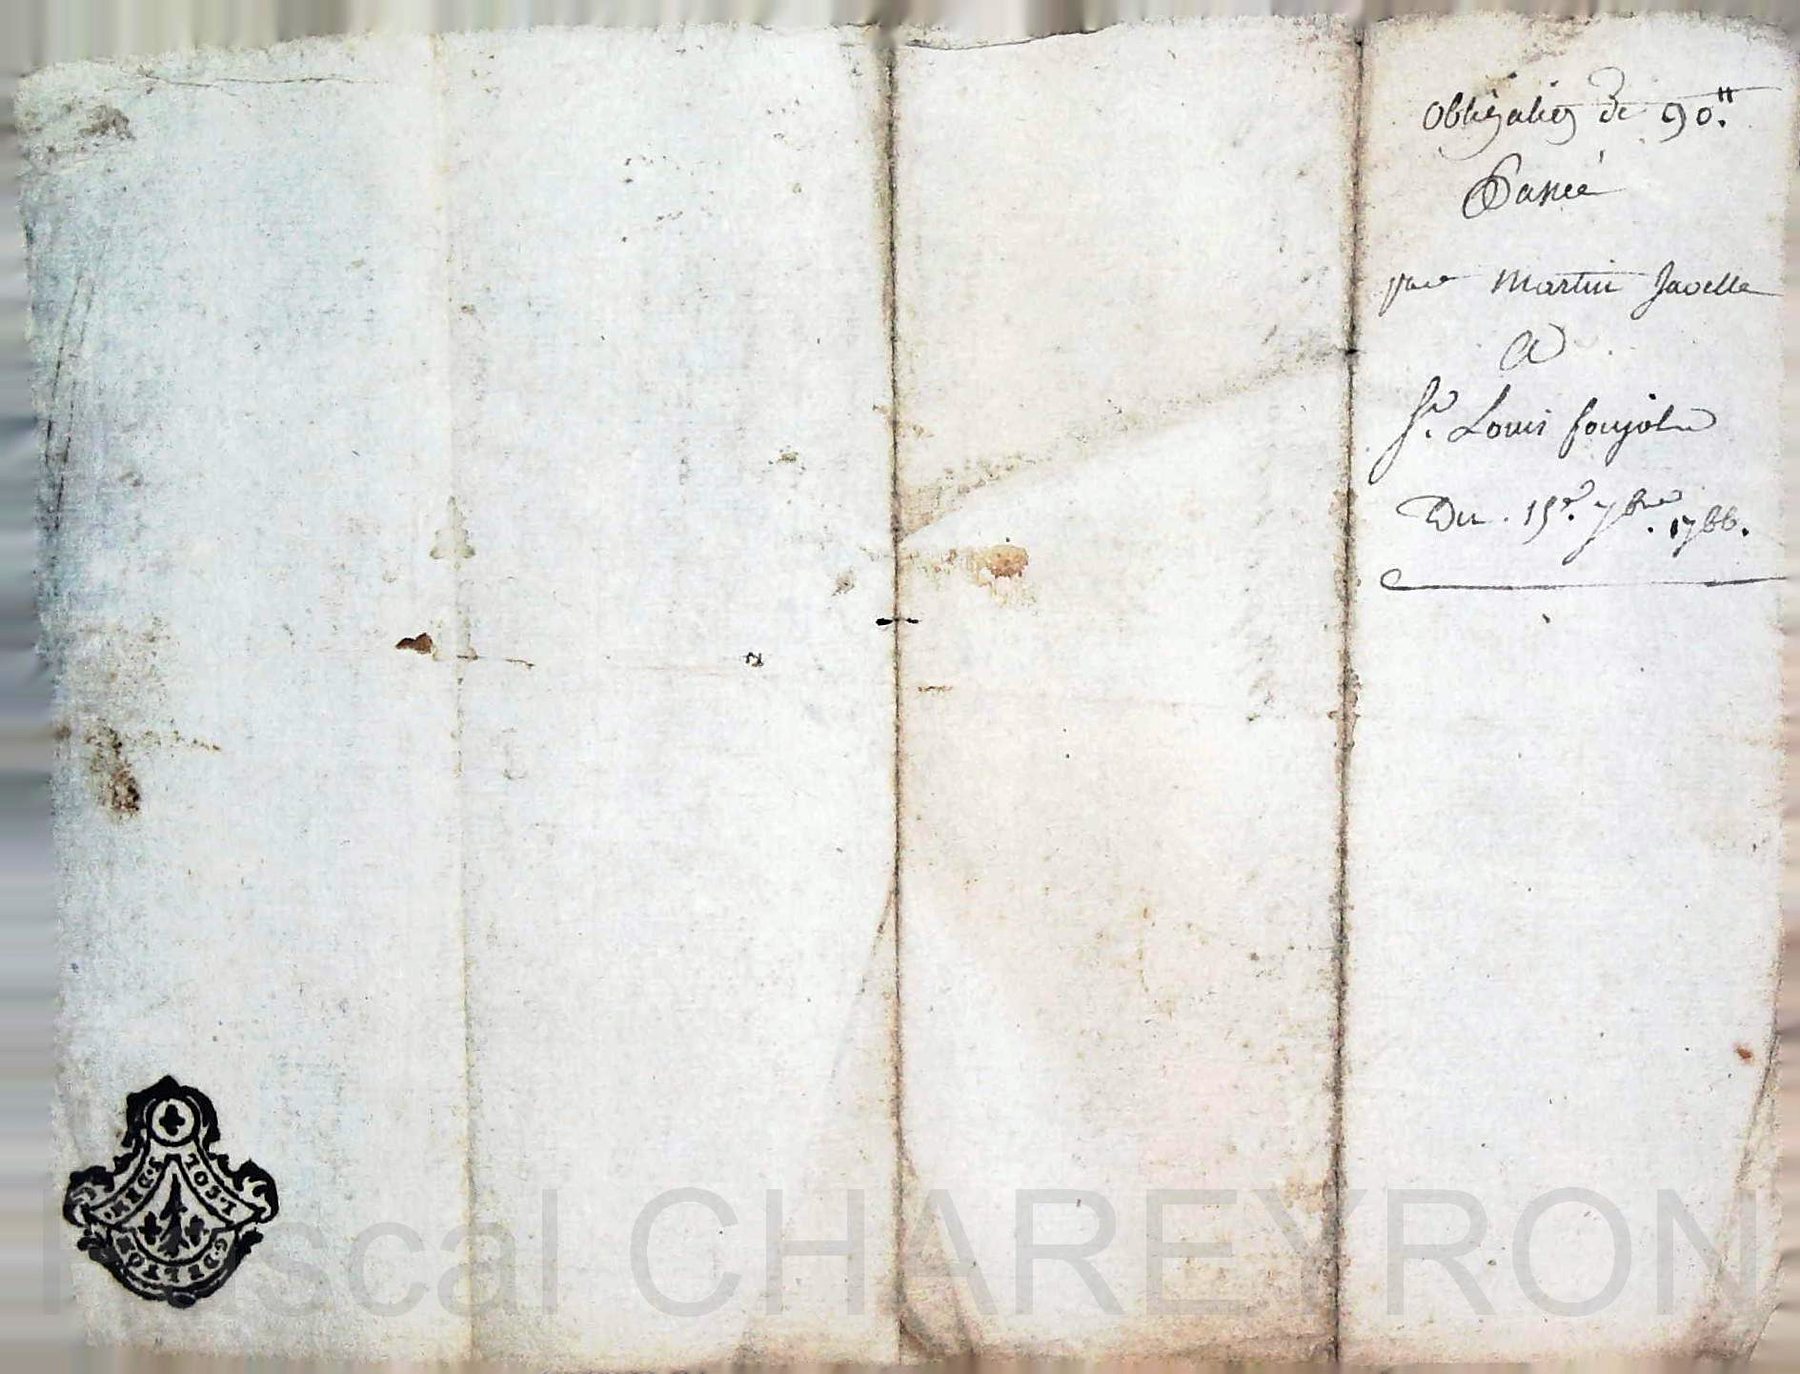 Obligation de 90.tt
Passée
par Martin Javelle
A
Sr. Louis foujols
Du. 15e. 7bre. 1766.
1. SOL. 4. DEN.
Pascal CHAREYRON